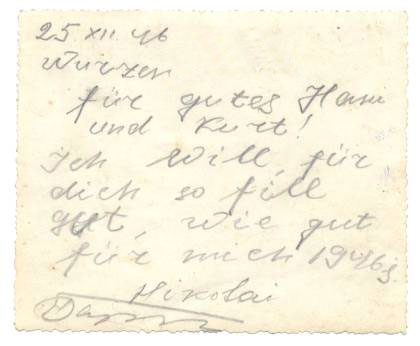 25 XII 46
Wurzen
für gutes Hans
und Kurt!
Ich will für
dich so fill
gut, wie gut
für mich 1946 j.
Nikolai